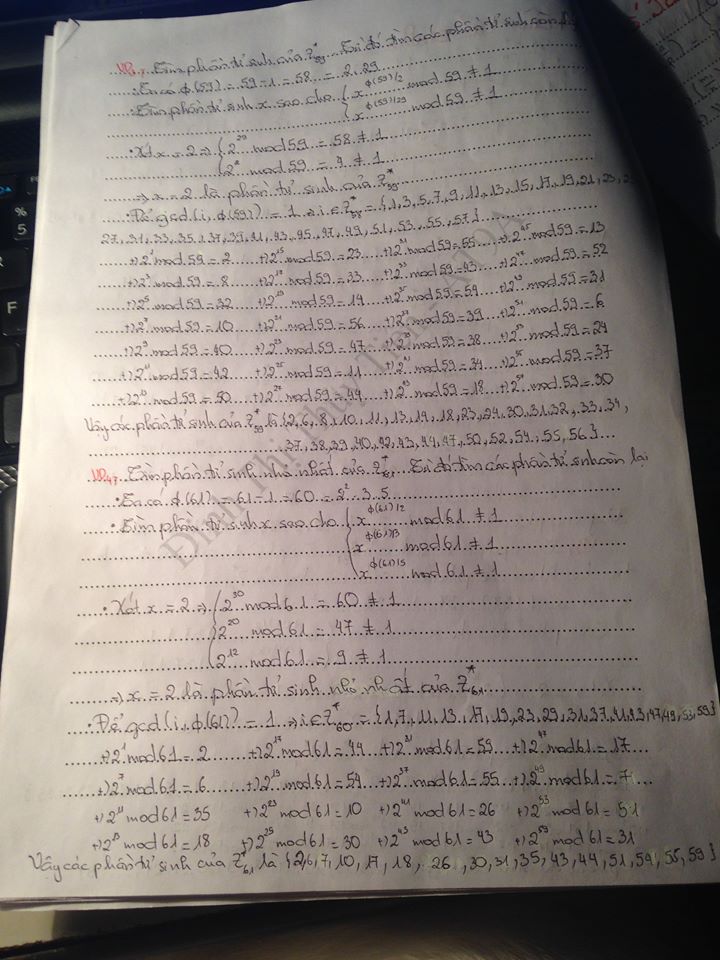 VD4.7. Tìm phần tử sinh của Z*59. Từ đó tìm các phần tử sinh còn
• Ta có ϕ(59) = 59 - 1 = 58 = 2.29
• Tìm phần tử sinh x sao cho { x^ϕ(59)/2 mod 59 ≠ 1
x^ϕ(59)/29 mod 59 ≠ 1
• Xét x = 2 ⇒ { 2^29 mod 59 = 58 ≠ 1
2^2 mod 59 = 4 ≠ 1
⇒ x = 2 là phần tử sinh của Z*59
• Để gcd(i, ϕ(59)) = 1 ⇒ i ∈ Z*58 = {1, 3, 5, 7, 9, 11, 13, 15, 17, 19, 21, 23, 25
27, 31, 33, 35, 37, 39, 41, 43, 45, 47, 49, 51, 53, 55, 57}
+) 2^1 mod 59 = 2 +) 2^15 mod 59 = 23 +) 2^31 mod 59 = 55 +) 2^45 mod 59 = 13
+) 2^3 mod 59 = 8 +) 2^17 mod 59 = 33 +) 2^33 mod 59 = 43 +) 2^47 mod 59 = 52
+) 2^5 mod 59 = 32 +) 2^19 mod 59 = 14 +) 2^35 mod 59 = 54 +) 2^49 mod 59 = 31
+) 2^7 mod 59 = 10 +) 2^21 mod 59 = 56 +) 2^37 mod 59 = 39 +) 2^51 mod 59 = 6
+) 2^9 mod 59 = 40 +) 2^23 mod 59 = 47 +) 2^39 mod 59 = 38 +) 2^53 mod 59 = 24
+) 2^11 mod 59 = 42 +) 2^25 mod 59 = 11 +) 2^41 mod 59 = 34 +) 2^55 mod 59 = 37
+) 2^13 mod 59 = 50 +) 2^27 mod 59 = 44 +) 2^43 mod 59 = 18 +) 2^57 mod 59 = 30
Vậy các phần tử sinh của Z*59 là {2, 6, 8, 10, 11, 13, 14, 18, 23, 24, 30, 31, 32, 33, 34,
37, 38, 39, 40, 42, 43, 44, 47, 50, 52, 54, 55, 56}
VD4.7. Tìm phần tử sinh nhỏ nhất của Z*61. Từ đó tìm các phần tử sinh còn lại
• Ta có ϕ(61) = 61 - 1 = 60 = 2^2.3.5
• Tìm phần tử sinh x sao cho { x^ϕ(61)/2 mod 61 ≠ 1
x^ϕ(61)/3 mod 61 ≠ 1
x^ϕ(61)/5 mod 61 ≠ 1
• Xét x = 2 ⇒ { 2^30 mod 61 = 60 ≠ 1
2^20 mod 61 = 47 ≠ 1
2^12 mod 61 = 9 ≠ 1
⇒ x = 2 là phần tử sinh nhỏ nhất của Z*61
• Để gcd(i, ϕ(61)) = 1 ⇒ i ∈ Z*60 = {1, 7, 11, 13, 17, 19, 23, 29, 31, 37, 41, 43, 47, 49, 53, 59}
+) 2^1 mod 61 = 2 +) 2^17 mod 61 = 44 +) 2^31 mod 61 = 59 +) 2^47 mod 61 = 17
+) 2^7 mod 61 = 6 +) 2^19 mod 61 = 54 +) 2^37 mod 61 = 55 +) 2^49 mod 61 = 7
+) 2^11 mod 61 = 35 +) 2^23 mod 61 = 10 +) 2^41 mod 61 = 26 +) 2^53 mod 61 = 51
+) 2^13 mod 61 = 18 +) 2^25 mod 61 = 30 +) 2^43 mod 61 = 43 +) 2^59 mod 61 = 31
Vậy các phần tử sinh của Z*61 là {2, 6, 7, 10, 17, 18, 26, 30, 31, 35, 43, 44, 51, 54, 55, 59}